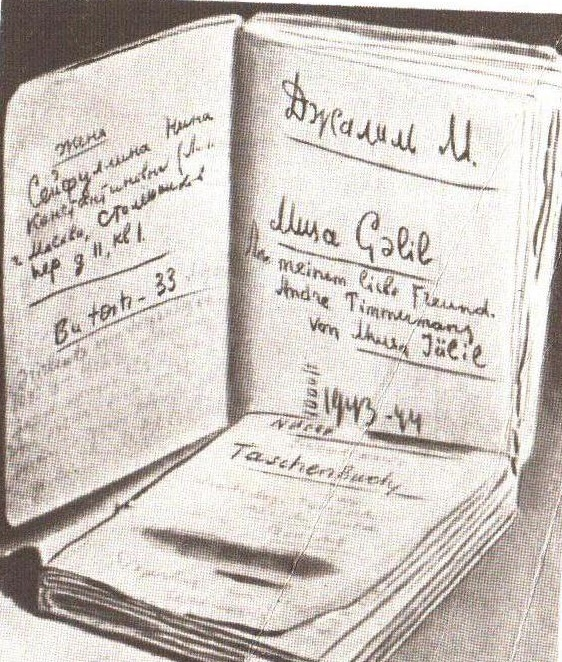 жена
Сейфуллина Нина
Константиновна
г. Москва, Столешников
пер д 11, кв 1.
33
Джалил М.
Musa Çəlil
meinem liebe Freund.
Andre Timmermans
von Musa Jälil
1943-44
Taschenbuch